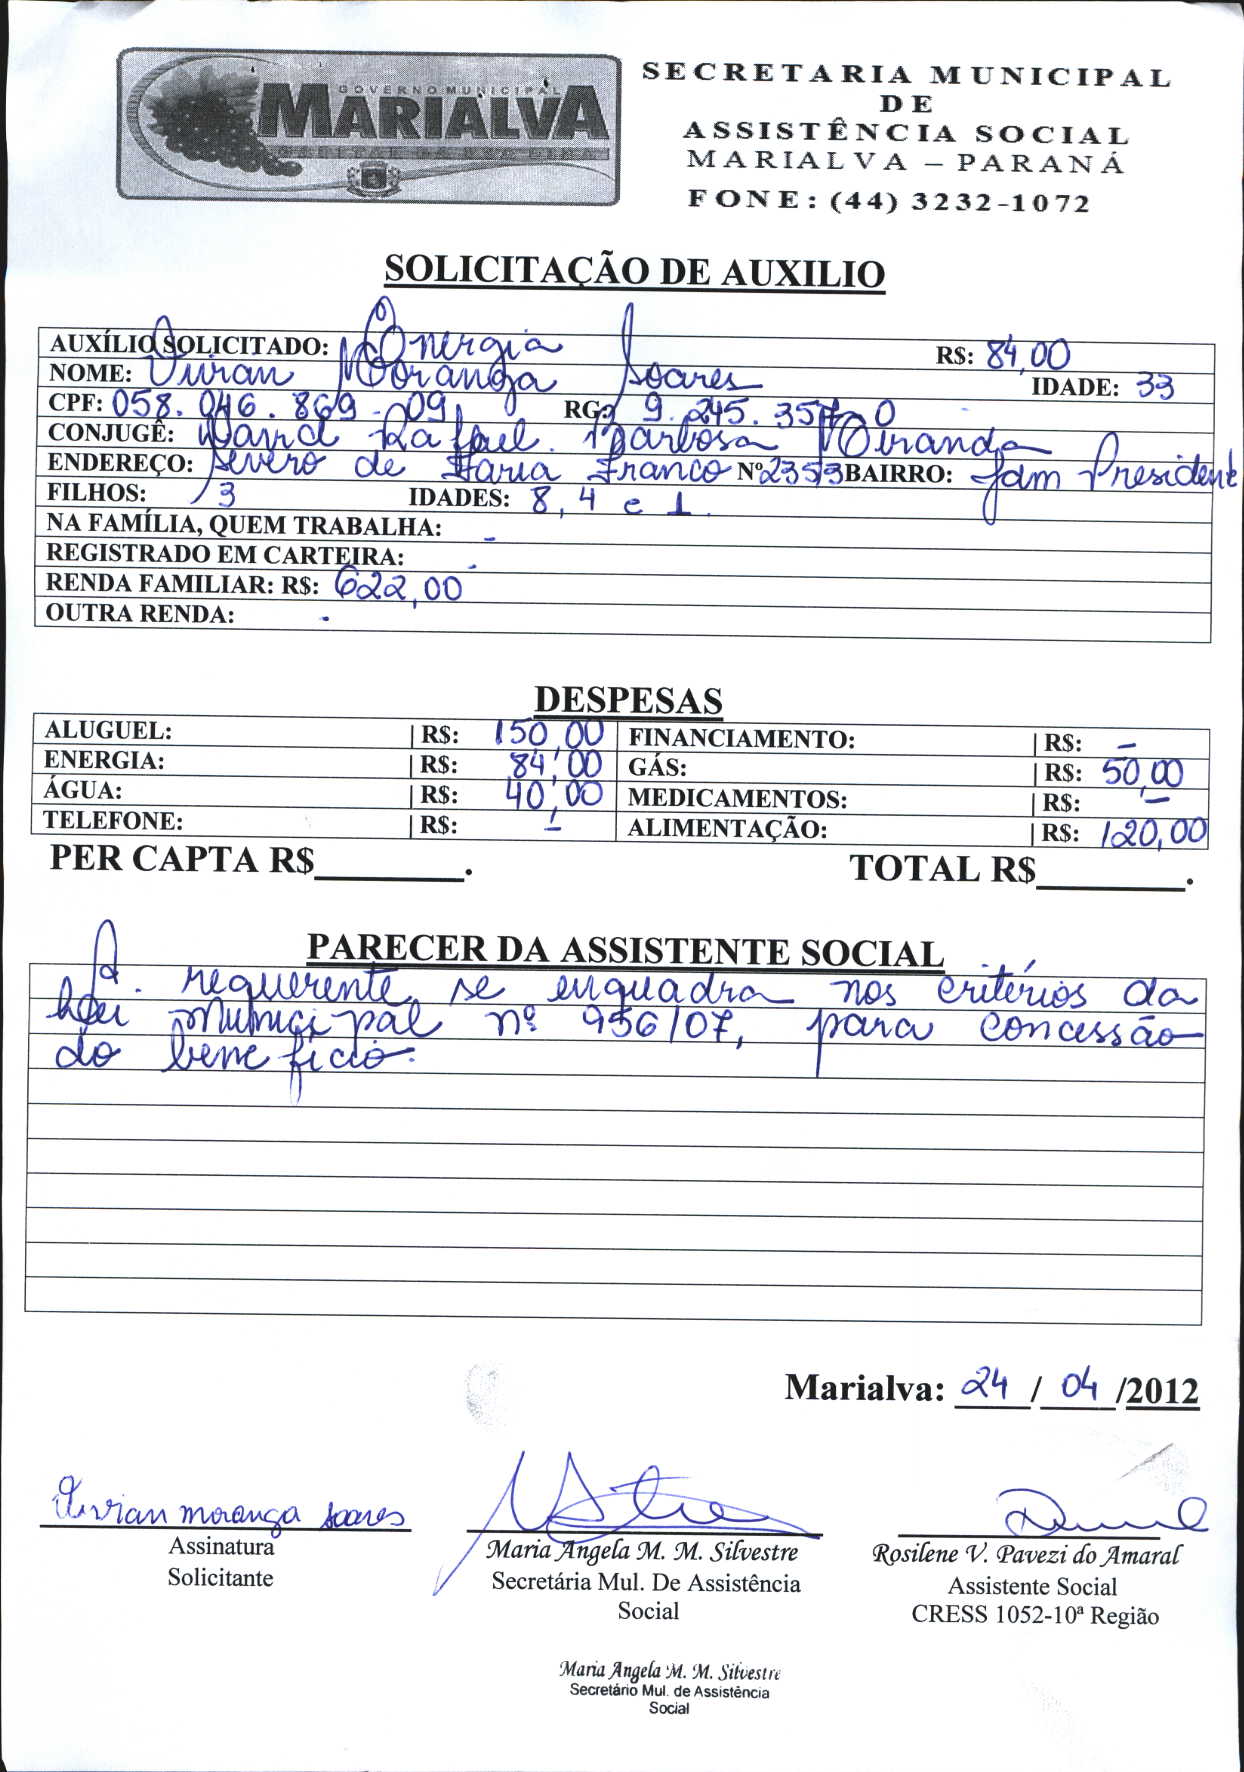 GOVERNO MUNICIPAL
MARIALVA
CAPITAL DA UVA FINA
SECRETARIA MUNICIPAL
DE
ASSISTÊNCIA SOCIAL
MARIALVA – PARANÁ
FONE: (44) 3232-1072
SOLICITAÇÃO DE AUXILIO
AUXÍLIO SOLICITADO: Energia R$: 84,00
NOME: Vivian Moranga Soares IDADE: 33
CPF: 058.046.869-09 RG: 9.245.357-0
CONJUGÊ: Rafael Barbosa Miranda
ENDEREÇO: Severo de Faria Franco Nº 2353 BAIRRO: Jdm Presidente
FILHOS: 3 IDADES: 8, 4 e 1.
NA FAMÍLIA, QUEM TRABALHA: -
REGISTRADO EM CARTEIRA: -
RENDA FAMILIAR: R$: 622,00
OUTRA RENDA: -
DESPESAS
ALUGUEL: | R$: 150,00 FINANCIAMENTO: | R$: -
ENERGIA: | R$: 84,00 GÁS: | R$: 50,00
ÁGUA: | R$: 40,00 MEDICAMENTOS: | R$: -
TELEFONE: | R$: - ALIMENTAÇÃO: | R$: 120,00
PER CAPTA R$________. TOTAL R$________.
PARECER DA ASSISTENTE SOCIAL
A requerente, se enquadra nos critérios da
Lei Municipal nº 956/07, para concessão
do benefício.
Marialva: 24 / 04 /2012
Vivian moranga soares
Assinatura
Solicitante
Maria Angela M. M. Silvestre
Secretária Mul. De Assistência
Social
Rosilene V. Pavezi do Amaral
Assistente Social
CRESS 1052-10ª Região
Maria Angela M. M. Silvestre
Secretário Mul. de Assistência
Social